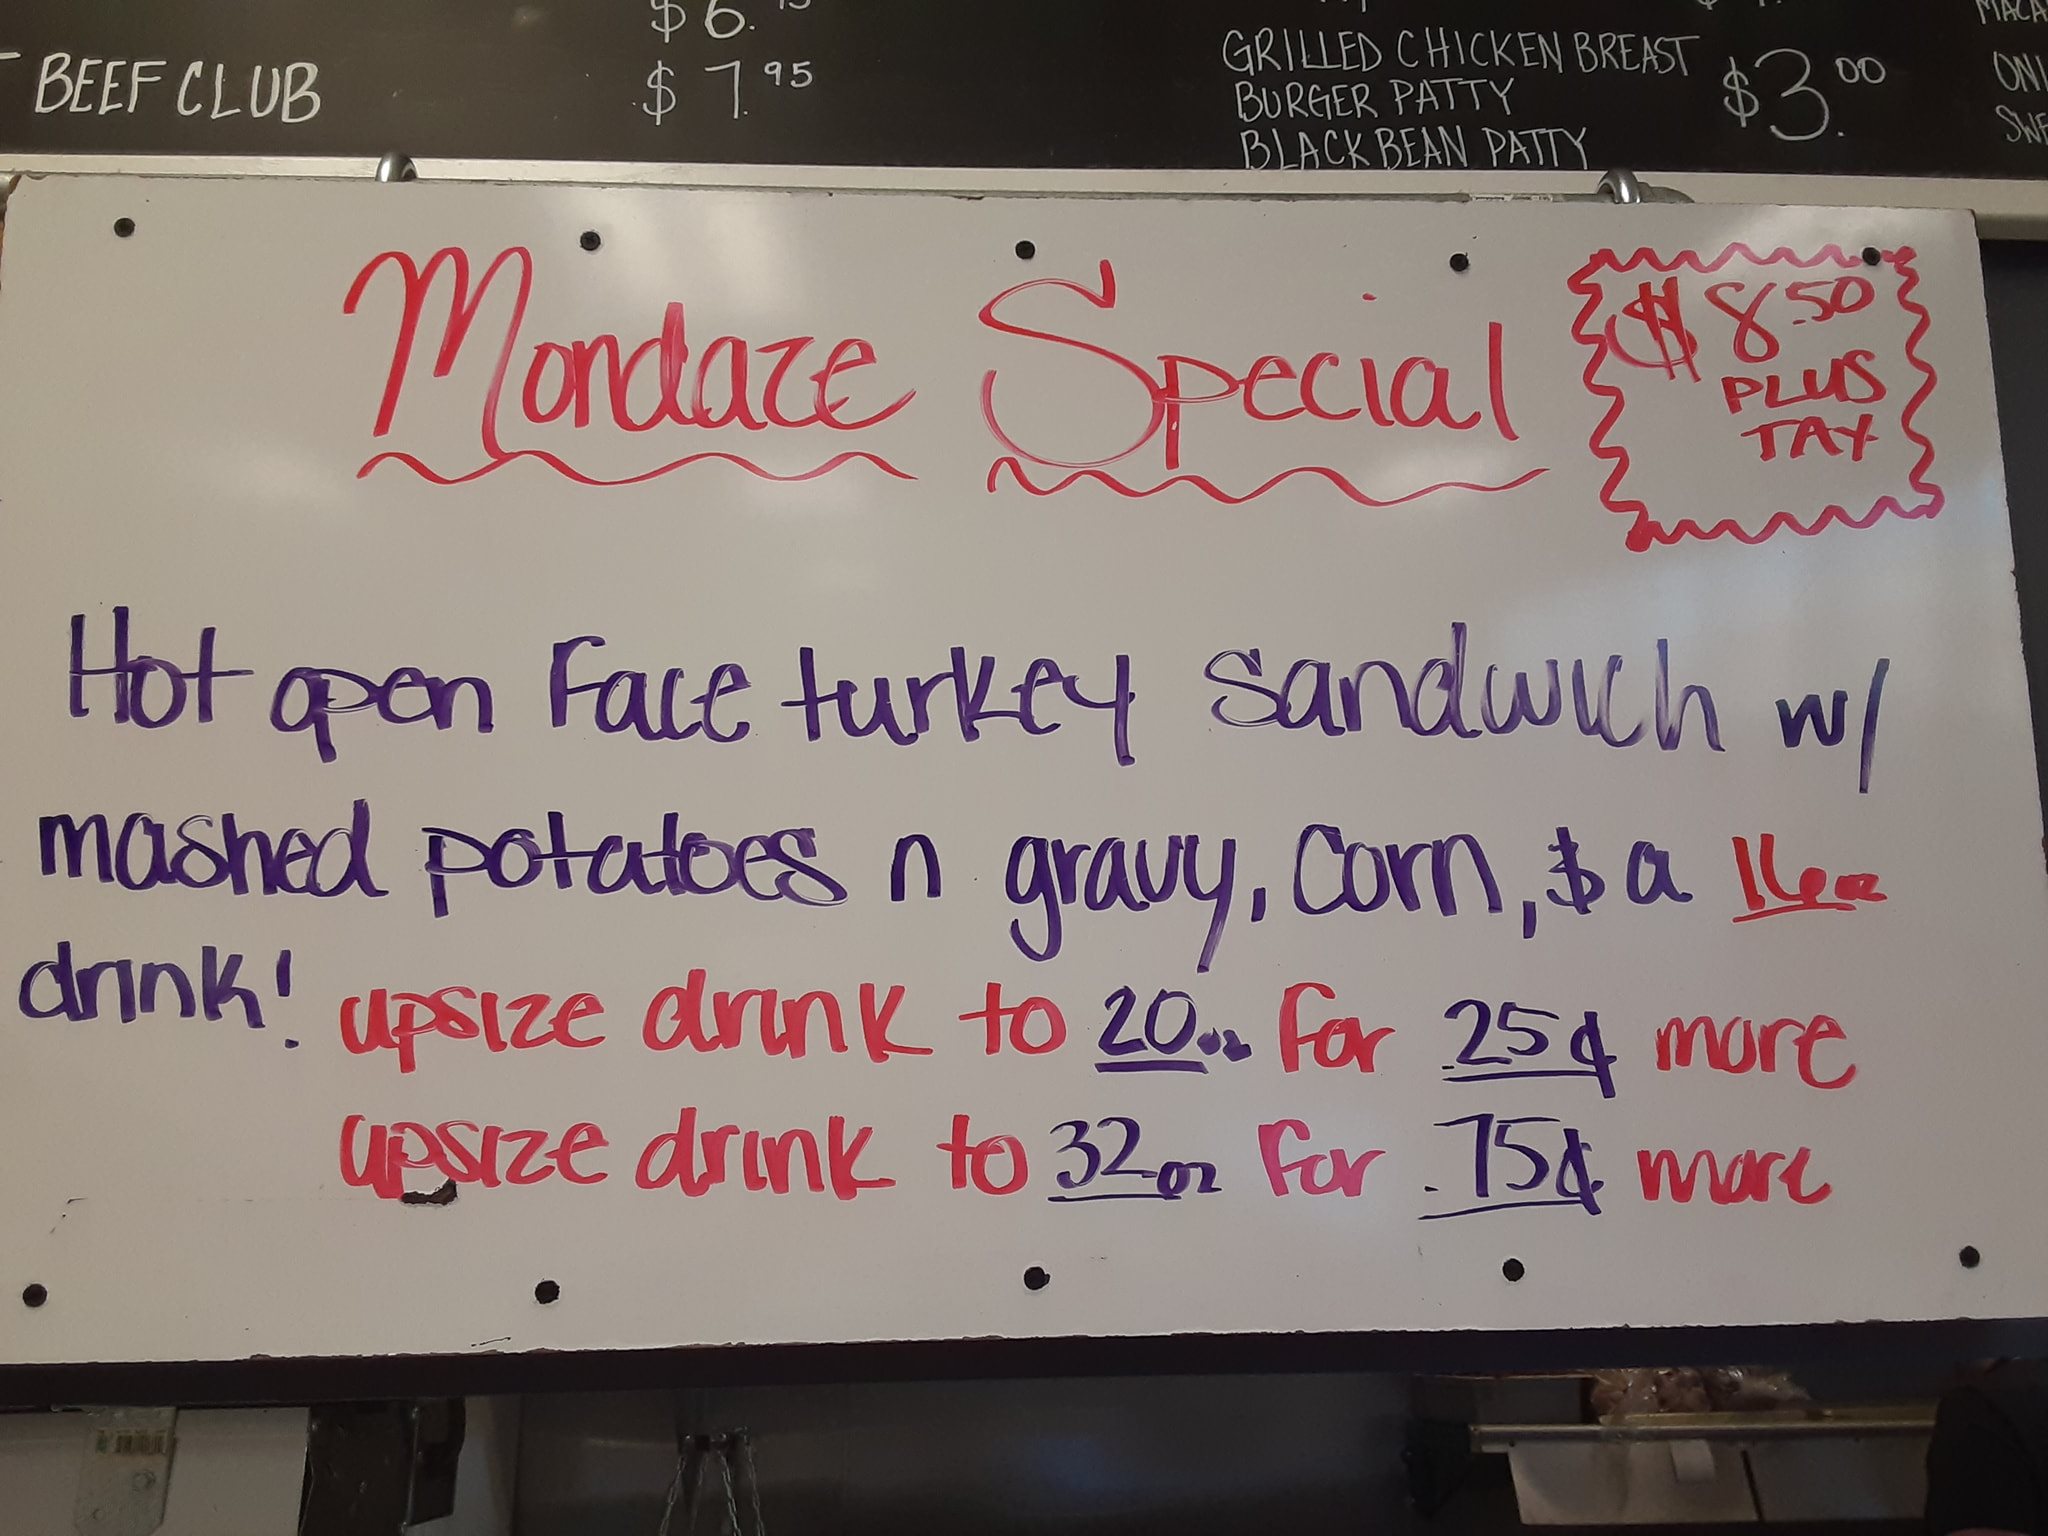 $6.
BEEF CLUB $7.95
GRILLED CHICKEN BREAST
BURGER PATTY $3.00
BLACK BEAN PATTY
Mondaze Special
$8.50
PLUS
TAX
Hot open Face turkey Sandwich w/
mashed potatoes n gravy, Corn, & a 16oz
drink!
upsize drink to 20oz For .25¢ more
upsize drink to 32oz For .75¢ more